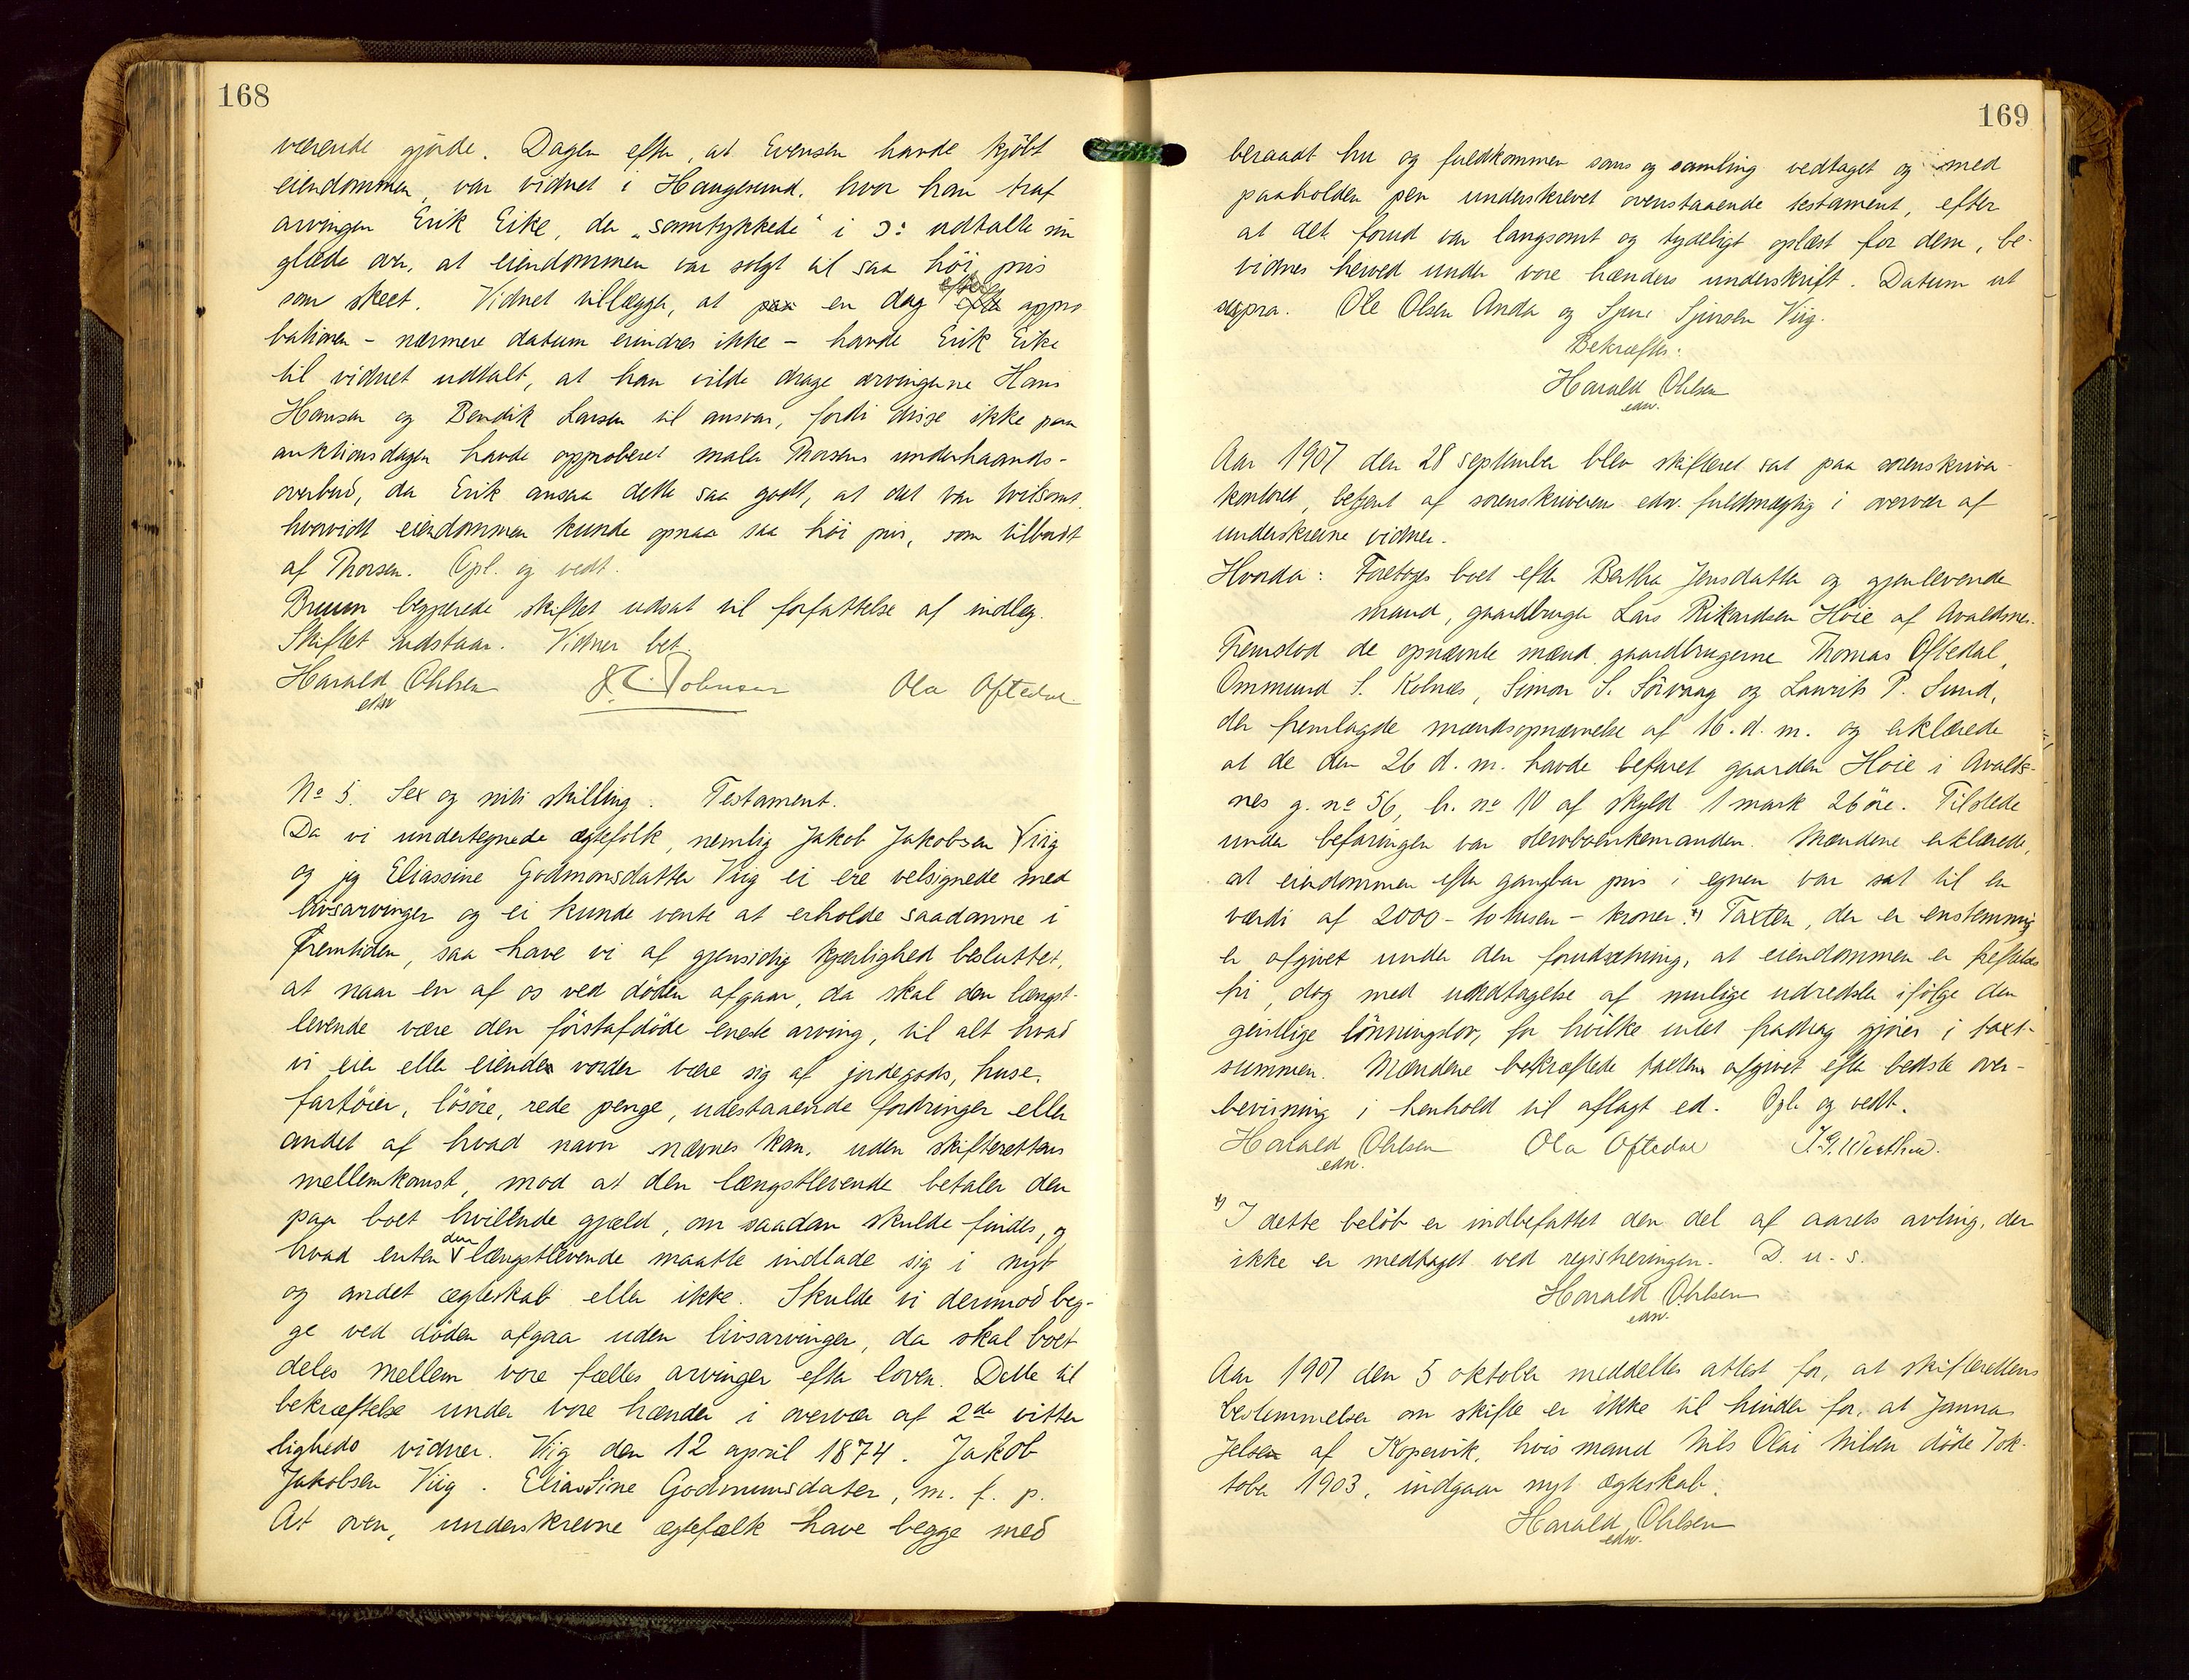 168
værende gjorde. Dagen efter, at Evensen havde kjöbt
eiendommen, var vidnet i Haugesund, hvor han traf
arvingen Erik Eike, der „samtykkede“ i ɔ: udtalte sin
glæde over, at eiendommen var solgt til saa höi pris
som skeet. Vidnet tillægger, at paa en dag efter appro
bationen - nærmere datum erindres ikke - havde Erik Eike
til vidnet udtalt, at han vilde drage arvingerne Hans
Hansen og Bendik Larsen til ansvar, fordi disse ikke paa
auktionsdagen havde approberet maler Thorsens underhaands-
overbud, da Erik ansaa dette saa godt, at det var tvilsomt,
hvorvidt eiendommen kunde opnaa saa höi pris, som tilbudt
af Thorsen. Opl. og vedt.
Bruun begjærede skiftet udsat til forfattelse af indlæg.
Skiftet udstaar. Vidner bet.
Harald Ohlsen J. C. Johnsen Ola Oftedal
edsv
No 5. Sex og niti skilling. Testament.
Da vi undertegnede ægtefolk, nemlig Jakob Jakobsen Viig
og jeg Eliassine Godmonsdatter Viig ei ere velsignede med
livsarvinger og ei kunde vente at erholde saadanne i
fremtiden, saa have vi af gjensidig kjærlighed besluttet,
at naar en af os ved döden afgaar, da skal den længst-
levende være den förstafdöde eneste arving, til alt hvad
vi eier eller eiendes vorder være sig af jordegods, huse,
fartöier, lösöre, rede penge, udestaaende fordringer eller
andet af hvad navn nævnes kan, uden skifterettens
mellemkomst, mod at den længstlevende betaler den
paa boet hvilende gjæld, om saadan skulde findes, og
hvad enten den længstlevende maatte indlade sig i nyt
og andet ægteskab eller ikke. Skulde vi derimod beg-
ge ved döden afgaa uden livsarvinger, da skal boet
deles mellem vore fælles arvinger efter loven. Dette til
bekræftelse under vore hænder i overvær af 2de vitter
ligheds vidner. Viig den 12 april 1874. Jakob
Jakobsen Viig. Eliassine Godmunsdater, m. f. p.
At oven, underskrevne ægtefælk have begge med
169
beraadt hu og fuldkommen sans og samling vedtaget og med
paaholden pen underskrevet ovenstaaende testament, efter
at det forud var langsomt og tydeligt oplæst for dem, be-
vidnes herved under vore hænders underskrift. Datum ut
supra. Ole Olsen Anda og Sjur Sjursen Viig.
Bekræftes:
Harald Ohlsen
edsv.
Aar 1907 den 28 september blev skifteret sat paa sorenskriver-
kontoret, betjent af sorenskriverens edsv. fuldmægtig i overvær af
underskrevne vidner.
Hvorda: Foretoges boet efter Bertha Jensdatter og gjenlevende
mand, gaardbruger Lars Rikardsen Höie af Avaldsnes.
Fremstod de opnævnte mænd gaardbrugerne Thomas Oftedal,
Ommund S. Kolnæs, Simon S. Sörvaag og Laurits P. Sund,
der fremlagde mændsopnævnelse af 16. d. m. og erklærede
at de den 26 d. m. havde befaret gaarden Höie i Avalds-
nes g. no 56, b. no 10 af skyld 1 mark 26 öre. Tilstede
under befaringen var stervboenkemanden. Mændene erklærede,
at eiendommen efter gangbar pris i egnen var sat til en
værdi af 2000 - to tusen - kroner. *) Taxten, der er enstemmig
er afgivet under den forudsætning, at eiendommen er heftelses
fri, dog med undtagelse af mulige udredsler ifölge den
geistlige lönningslov, for hvilke intet fradrag gjöres i taxt-
summen. Mændene bekræftede taxten afgivet efter bedste over-
bevisning i henhold til aflagt ed. Opl. og vedt.
Harald Ohlsen Ola Oftedal
edsv.
*) I dette belöb er indbefattet den del af aarets avling, der
ikke er medtaget ved registreringen. D. u. s.
Harald Ohlsen
edsv.
Aar 1907 den 5 oktober meddeltes attest for, at skifterettens
bestemmelser om skifte er ikke til hinder for, at Janna
af Kopervik, hvis mand Nils Olai Nilsen döde 7 ok-
tober 1903, indgaar nyt ægteskab.
Harald Ohlsen
edsv.